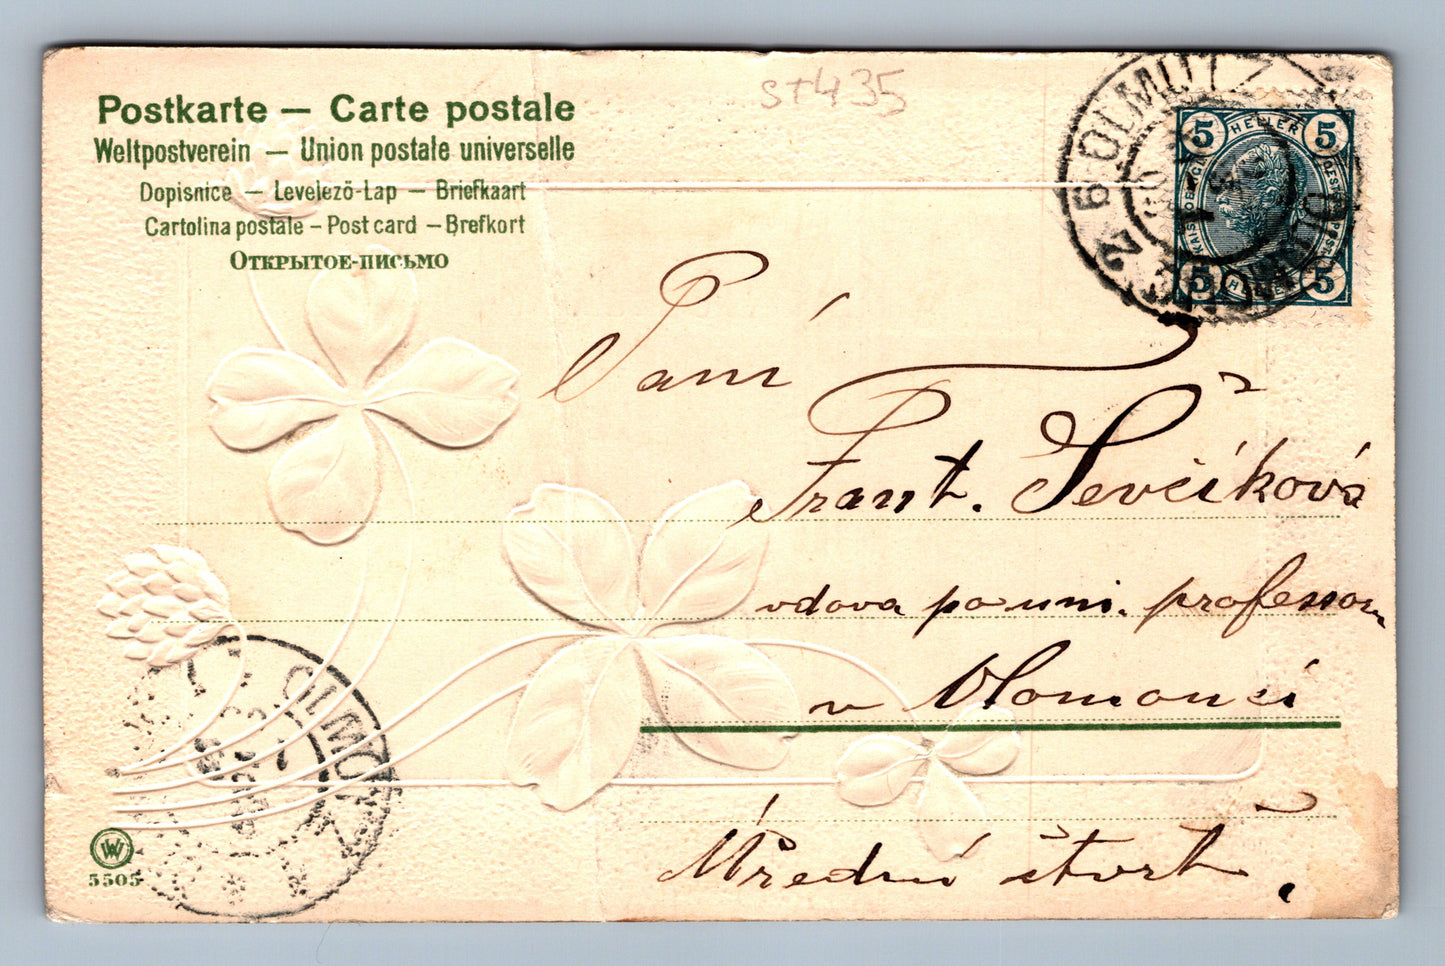 st435
Postkarte — Carte postale
Weltpostverein — Union postale universelle
Dopisnice — Levelező-Lap — Briefkaart
Cartolina postale – Post card – Brefkort
Открытое-письмо
2 b OLMÜTZ
5 HELLER 5
5 HELLER 5
Paní
Frant. Ševčíková
vdova po uni. professoru
v Olomouci
Úřední čtvrť.
OLMÜTZ
W
5505